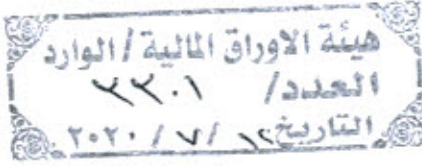 هيئة الاوراق المالية / الوارد
العدد /
التاريخ ١٢ / ٧ / ٢٠٢٠